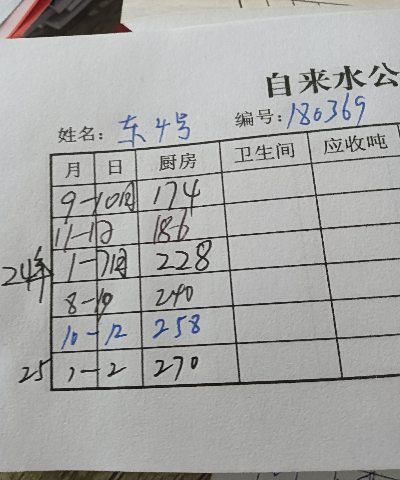 自来水公
姓名：东4号 编号：180369
月 日 厨房 卫生间 应收吨
9-10月 174
11-12 186
24年 1-7月 228
8-10 240
10-12 258
25 1-2 270